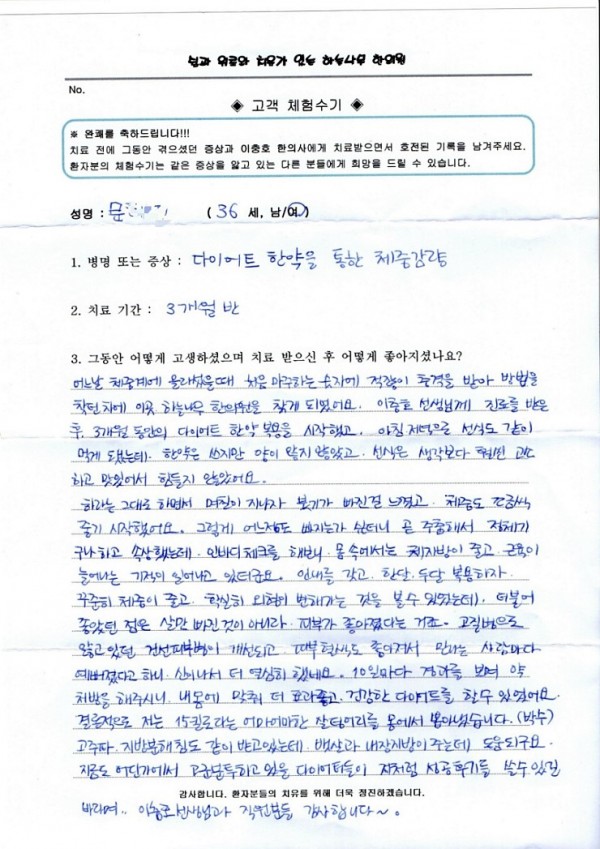 No.
◈ 고객 체험수기 ◈
※ 완쾌를 축하드립니다!!!
치료 전에 그동안 겪으셨던 증상과 이충호 한의사에게 치료받으면서 호전된 기록을 남겨주세요.
환자분의 체험수기는 같은 증상을 앓고 있는 다른 분들에게 희망을 드릴 수 있습니다.
성명 : 문 ( 36 세, 남/여 )
1. 병명 또는 증상 : 다이어트 한약을 통한 체중감량
2. 치료 기간 : 3개월 반
3. 그동안 어떻게 고생하셨으며 치료 받으신 후 어떻게 좋아지셨나요?
어느날 체중계에 올라섰을때 처음 마주하는 숫자에 적잖이 충격을 받아 방법을
찾던차에 이곳 하늘나무 한의원을 찾게 되었어요. 이충호 선생님께 진료를 받은
후, 3개월 동안의 다이어트 한약 복용을 시작했고. 아침 저녁으로 선식도 같이
먹게 됐는데. 한약은 쓰지만 양이 많지 않았고. 선식은 생각보다 훨씬 고소
하고 맛있어서 힘들지 않았어요.
하라는 그대로 하면서 며칠이 지나자 붓기가 빠진걸 느꼈고. 체중도 조금씩
줄기 시작했어요. 그렇게 어느정도 빠지는가 싶더니 곧 주춤해서 정체기
구나 하고 속상했는데. 인바디체크를 해보니 몸 속에서는 체지방이 줄고. 근육이
늘어나는 기적이 일어나고 있더군요. 인내를 갖고. 한달. 두달 복용하자.
꾸준히 체중이 줄고. 확실히 외형이 변해가는 것을 볼수 있었는데. 더불어
좋았던 점은 살만 빠진것이 아니라. 피부가 좋아졌다는 거죠. 고질병으로
앓고 있던 건선피부병이 개선되고. 피부 탄력도 좋아져서 만나는 사람마다
예뻐졌다고 하니. 신이나서 더 열심히 했네요. 10일마다 경과를 보며 약
처방을 해주시니. 내 몸에 맞춰 더 효과좋고. 건강한 다이어트를 할수 있었어요.
결론적으로 저는 15킬로라는 어마어마한 살덩어리를 몸에서 뽑아냈습니다. (박수)
고주파. 지방분해침도 같이 받고있는데. 뱃살과 내장지방이 주는데 도움되구요.
지금도 어딘가에서 고군분투하고 있을 다이어터들이 저처럼 성공후기를 쓸수 있길
감사합니다. 환자분들의 치유를 위해 더욱 정진하겠습니다.
바라며.. 이충호선생님과 직원분들 감사합니다~.